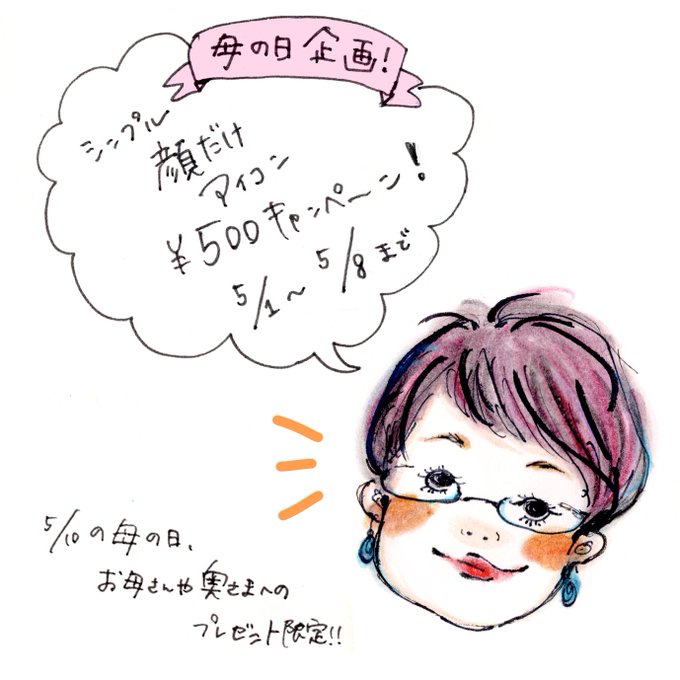 母の日企画!
シンプル
顔だけ
アイコン
¥500キャンペーン!
5/1〜5/8まで
5/10の母の日、
お母さんや奥さまへの
プレゼント限定!!